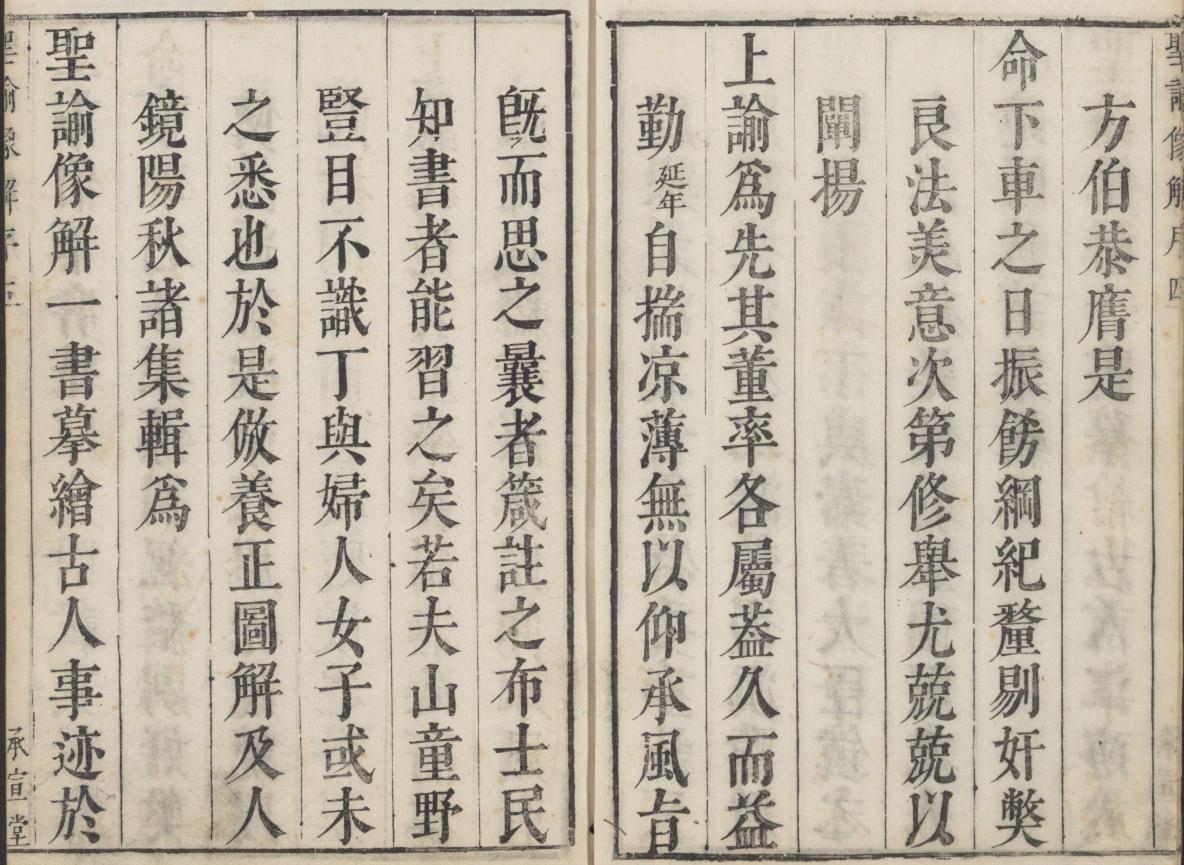 聖諭像解序 四
方伯恭膺是
命下車之日振飭綱紀釐剔奸弊
良法美意次第修舉尤兢兢以
闡揚
上諭爲先其董率各屬葢久而益
勤延年自揣凉薄無以仰承風旨
旣而思之曩者箴註之布士民
知書者能習之矣若夫山童野
豎目不識丁與婦人女子或未
之悉也於是倣養正圖解及人
鏡陽秋諸集輯爲
聖諭像解一書摹繪古人事迹於
聖諭像解序 五
承宣堂